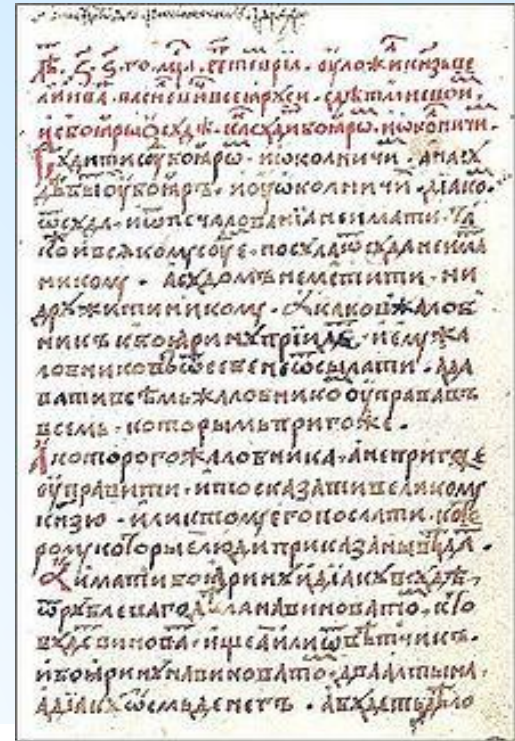 лѣ. ҂з. ѕ҃-го. мц҃а. септеврїа. оуложи кн҃зь ве
ликїи іва. васи всеꙗ рꙋси. с дѣтми своими
и с боꙗры о сꙋдѣ. ка сꙋди боꙗрѡ. и ѡколничи.
Сꙋдити сꙋ боꙗрѡ. и ѡколничи. а на сꙋ
дѣ быти оу боꙗръ. и оу ѡколничи дїако
ѿ сꙋда. и ѿ печалованїа не имати. та
ко и всѧкомꙋ сꙋе. посꙋла ѿ сꙋда не има
никомꙋ. а сꙋдомъ не мстити. ни
дрꙋжити никомꙋ. А каков жалоб
никъ к боꙗринꙋ прїидеⷮ. и емꙋ жа
лобниковъ ѿ себе не ѿсылати. а да
вати всѣмъ жалобнико оуправа въ
всемь. которымь пригоже.
А которого жалобника. а не пригоже
оуправити. и то сказати великомꙋ
кн҃зю. или к томꙋ его послати. кото
ромꙋ которые люди приказаны вѣда.
А имати боꙗринꙋ и дїакꙋ в сꙋдѣ
ѿ рꙋблеваго дѣла на виновато. кто
бꙋде винова. ищеа или ѿвѣтчикъ.
и боꙗринꙋ на виновато. два алтына.
а дїакꙋ ѡсмь денегъ. а бꙋдеть дѣло